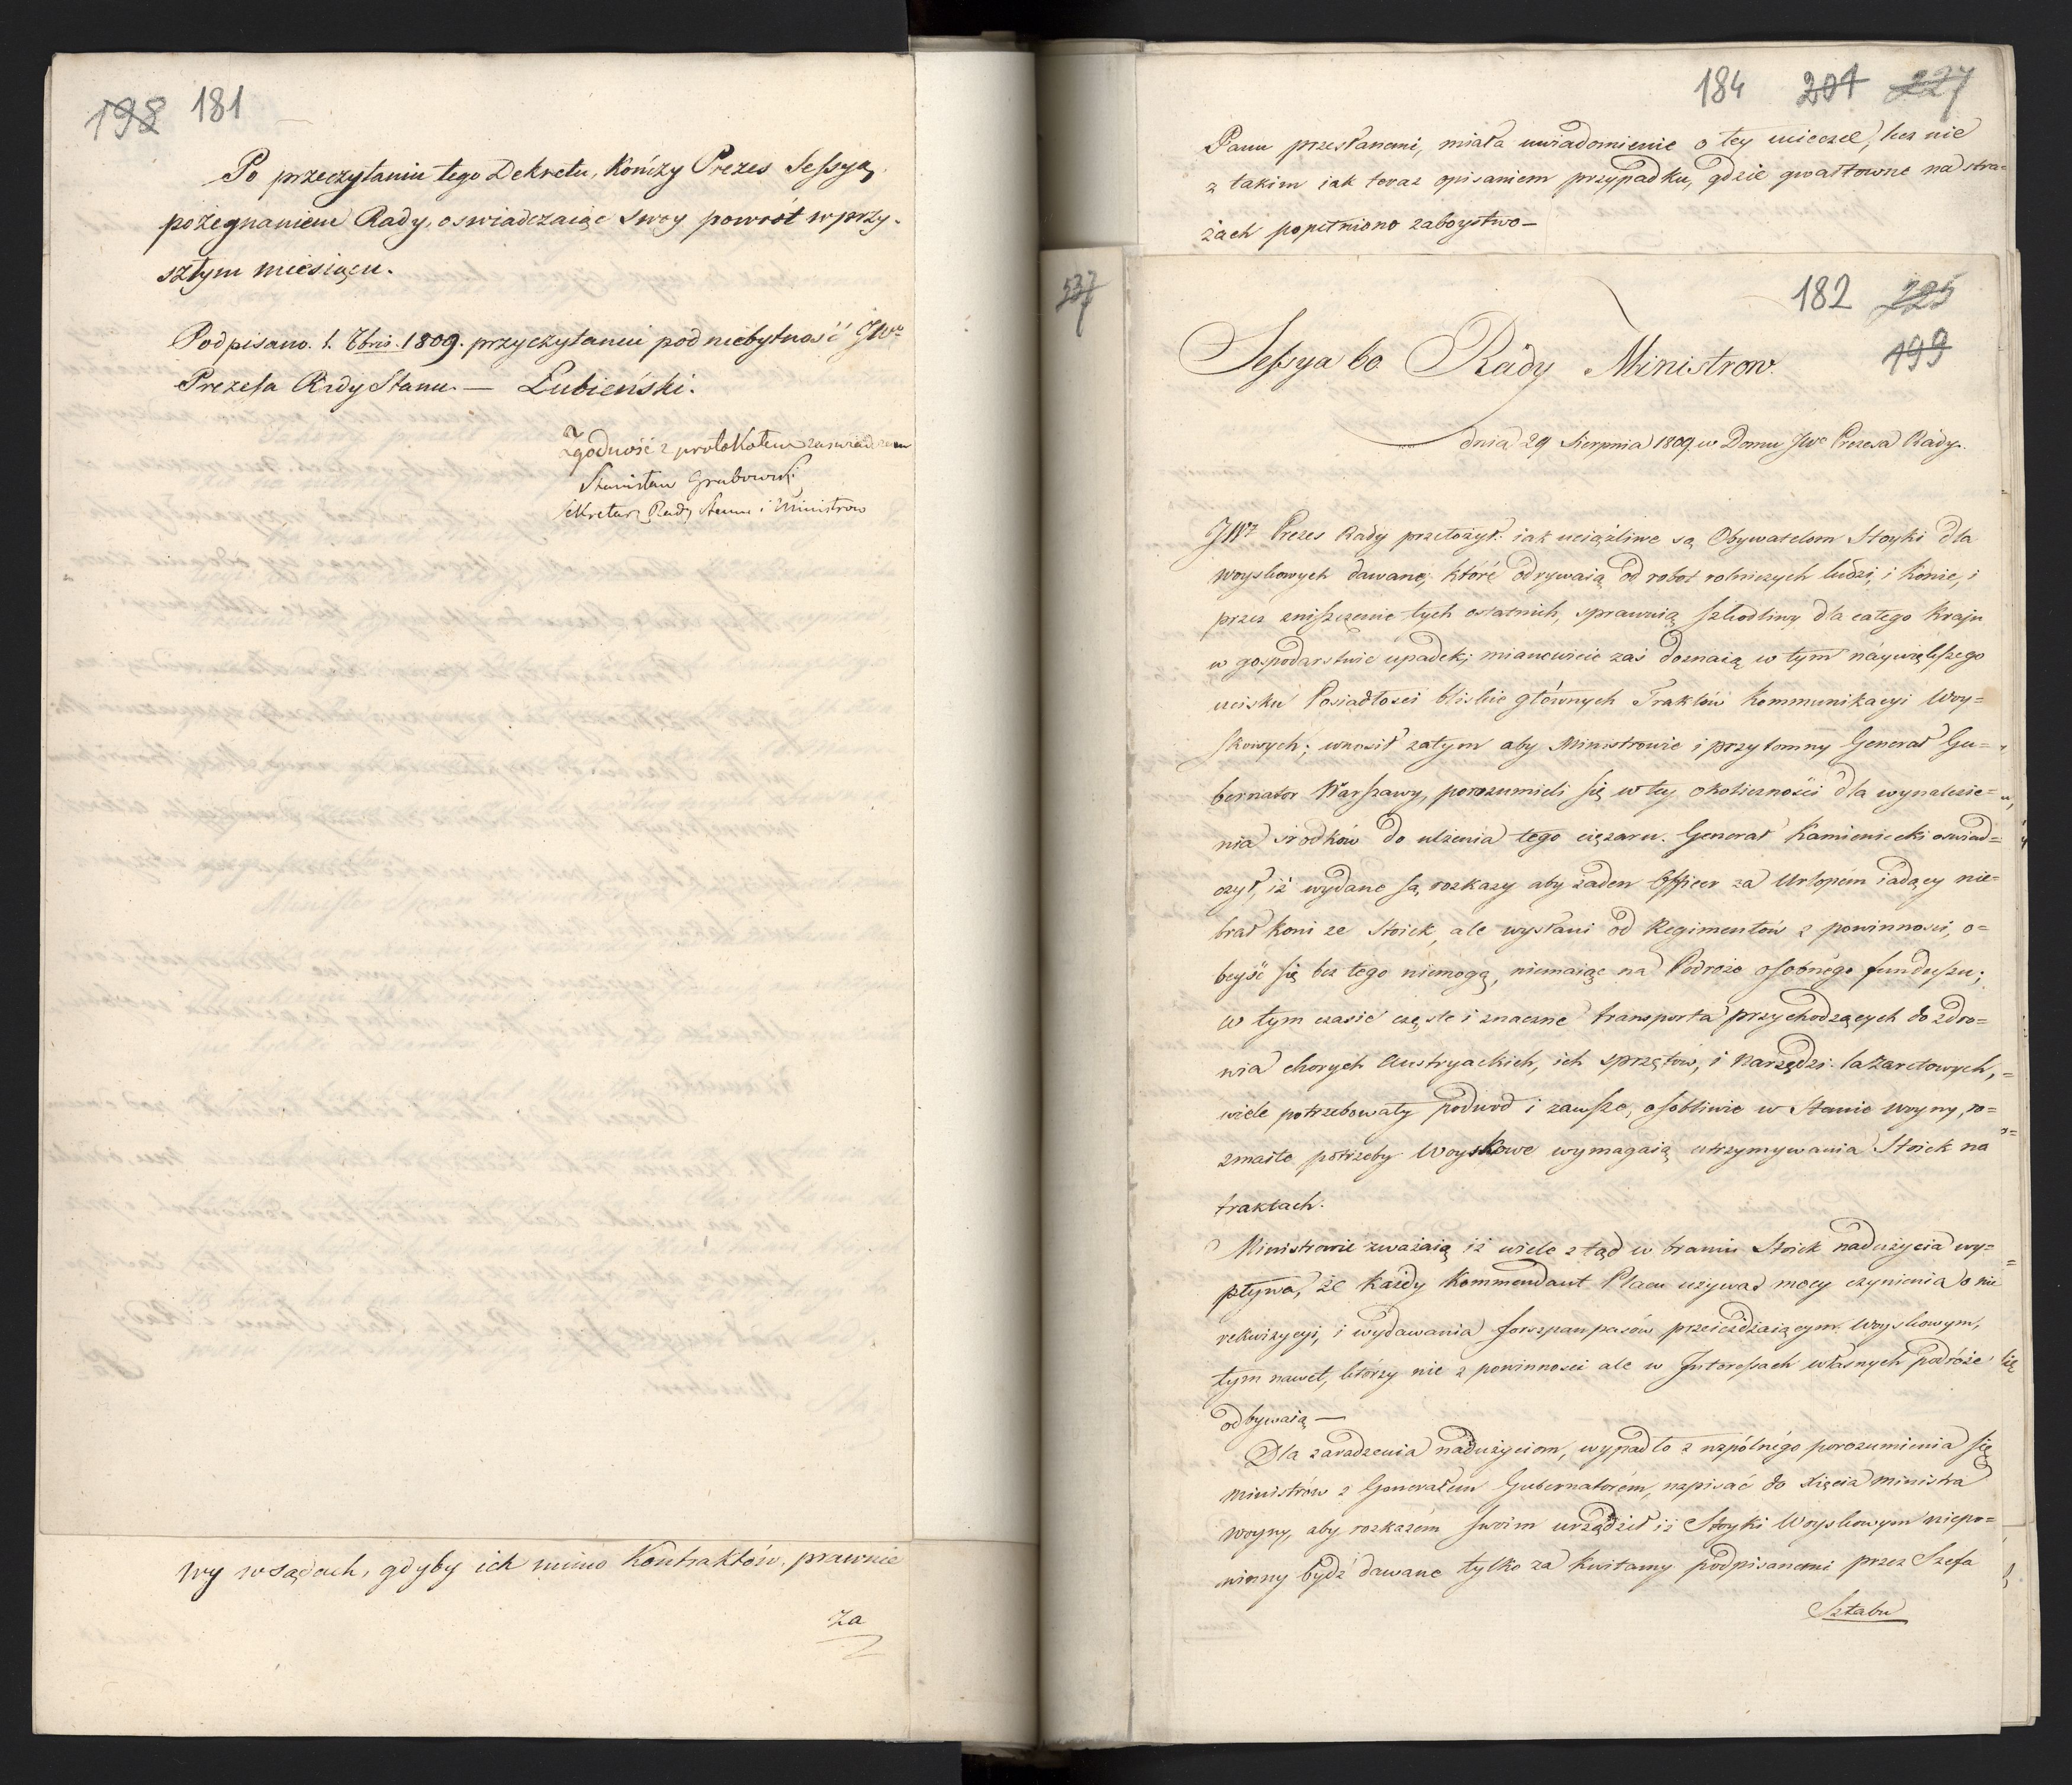 198 181
Po przeczytaniu tego Dekretu, Kończy Prezes Sessyą,
pożegnaniem Rady, oswiadczaiąc swoy powrót w przy-
szłym miesiącu.
Podpisano. 1. 7bris. 1809. przyczytaniu pod niebytność JWo
Prezesa Rady Stanu. — Łubieński.
Zgodność z protokołem zaswiadczam
Stanisław Grabowski
Sekretarz Rady Stanu i Ministrow
wy w sądach, gdyby ich mimo Kontraktów, prawnie
za
184 204 227
Panu przesłanemi, miała uwiadomienie o tey mieczce, lecz nie
z takim iak teraz opisaniem przypadku, gdzie gwałtowne na stra-
żach popełniono zaboystwo —
537
182 225
199
Sessya 60 Rady Ministrow.
dnia 29 Sierpnia 1809. w Domu JWo Prezesa Rady.
JWy Prezes Rady przełożył: iak uciążliwe są Obywatelom Stoyki dla
Woyskowych dawane, które odrywaią od robot rolniczych ludzi, i konie, i
przez zniszczenie tych ostatnich, sprawuią szkodliwy dla całego Kraju
w gospodarstwie upadek; mianowicie zaś doznaią w tym náywiększego
ucisku Posiadłości bliskie głównych Traktów Kommunikacyi Woy=
skowych; wnosił zatym aby Ministrowie i przytomny Generał Gu=
bernator Warszawy, porozumieli się w tey okoliczności dla wynalezie=
nia srodków do ulżenia tego ciężaru. Generał Kamieniecki oswiad=
czył, iż wydane są rozkazy aby żaden Officer za Urlopem iadący nie=
brał koni ze Stoiek, ale wysłani od Regimentów z powinności, o=
beyść się bez tego niemogą, niemaiąc na Podróże osobnego funduszu;
w tym czasie częste i znaczne transporta przychodzących do zdro=
wia chorych Austryackich, ich sprzętow, i Narzędzi lazaretowych,
wiele potrzebowały podwod i zawsze, osobliwie w Stanie woyny, ro=
zmaite potrzeby Woyskowe wymagaią utrzymywania Stoiek na
traktach.
Ministrowie uważaią iż wiele ztąd w braniu Stoiek nadużycia wy=
pływa, że każdy Kommendant Placu używał mocy czynienia o nie
rekwizycyi, i wydawania forszpanpasów przeieżdżaiącym Woyskowym,
tym nawet, którzy nie z powinności ale w Interessach własnych podróże
odbywaią —
Dla zaradzenia nadużyciom, wypadło z wspólnégo porozumienia się
Ministrów z Generałem Gubernatorém, napisać do Xięcia Ministra
Woyny, aby rozkazém swoim urządził iż Stoyki Woyskowym niepo=
winny bydź dawane tylko za kwitamy podpisanemi przez Szefa
Sztabu